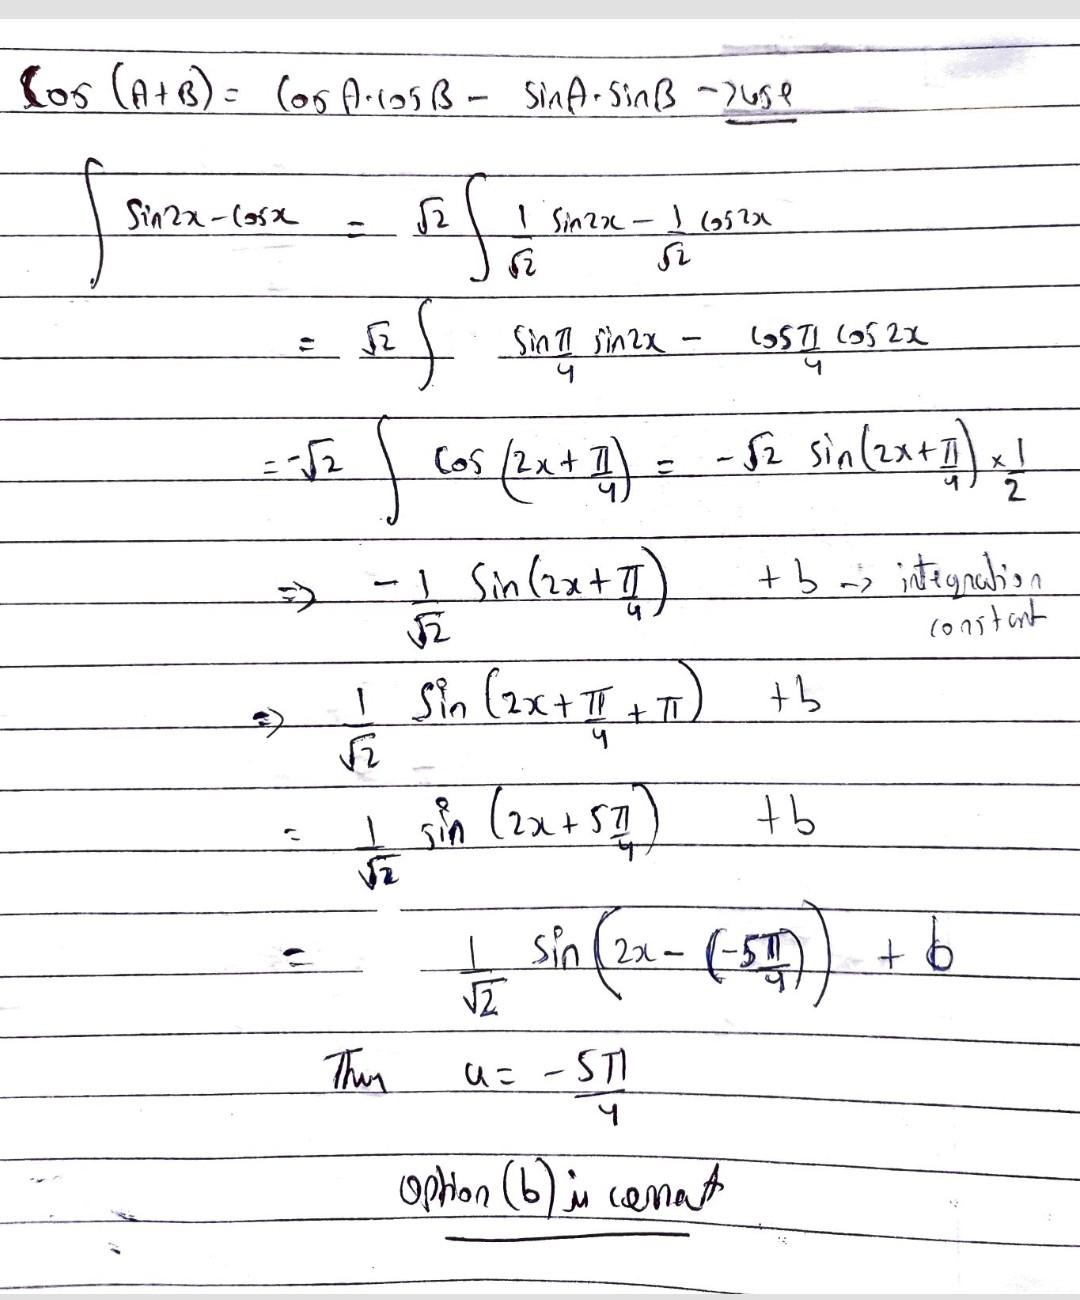 Cos (A+B) = Cos A·cos B - sin A·sin B → use
∫ sin2x - cosx = √2 ∫ 1/√2 sin2x - 1/√2 cos2x
= √2 ∫ sin π/4 sin2x - cos π/4 cos 2x
= -√2 ∫ cos (2x + π/4) = -√2 sin(2x + π/4) × 1/2
⇒ -1/√2 sin(2x + π/4) + b → integration constant
⇒ 1/√2 sin (2x + π/4 + π) + b
= 1/√2 sin (2x + 5π/4) + b
= 1/√2 sin (2x - (-5π/4)) + b
Thus a = -5π/4
option (b) is correct